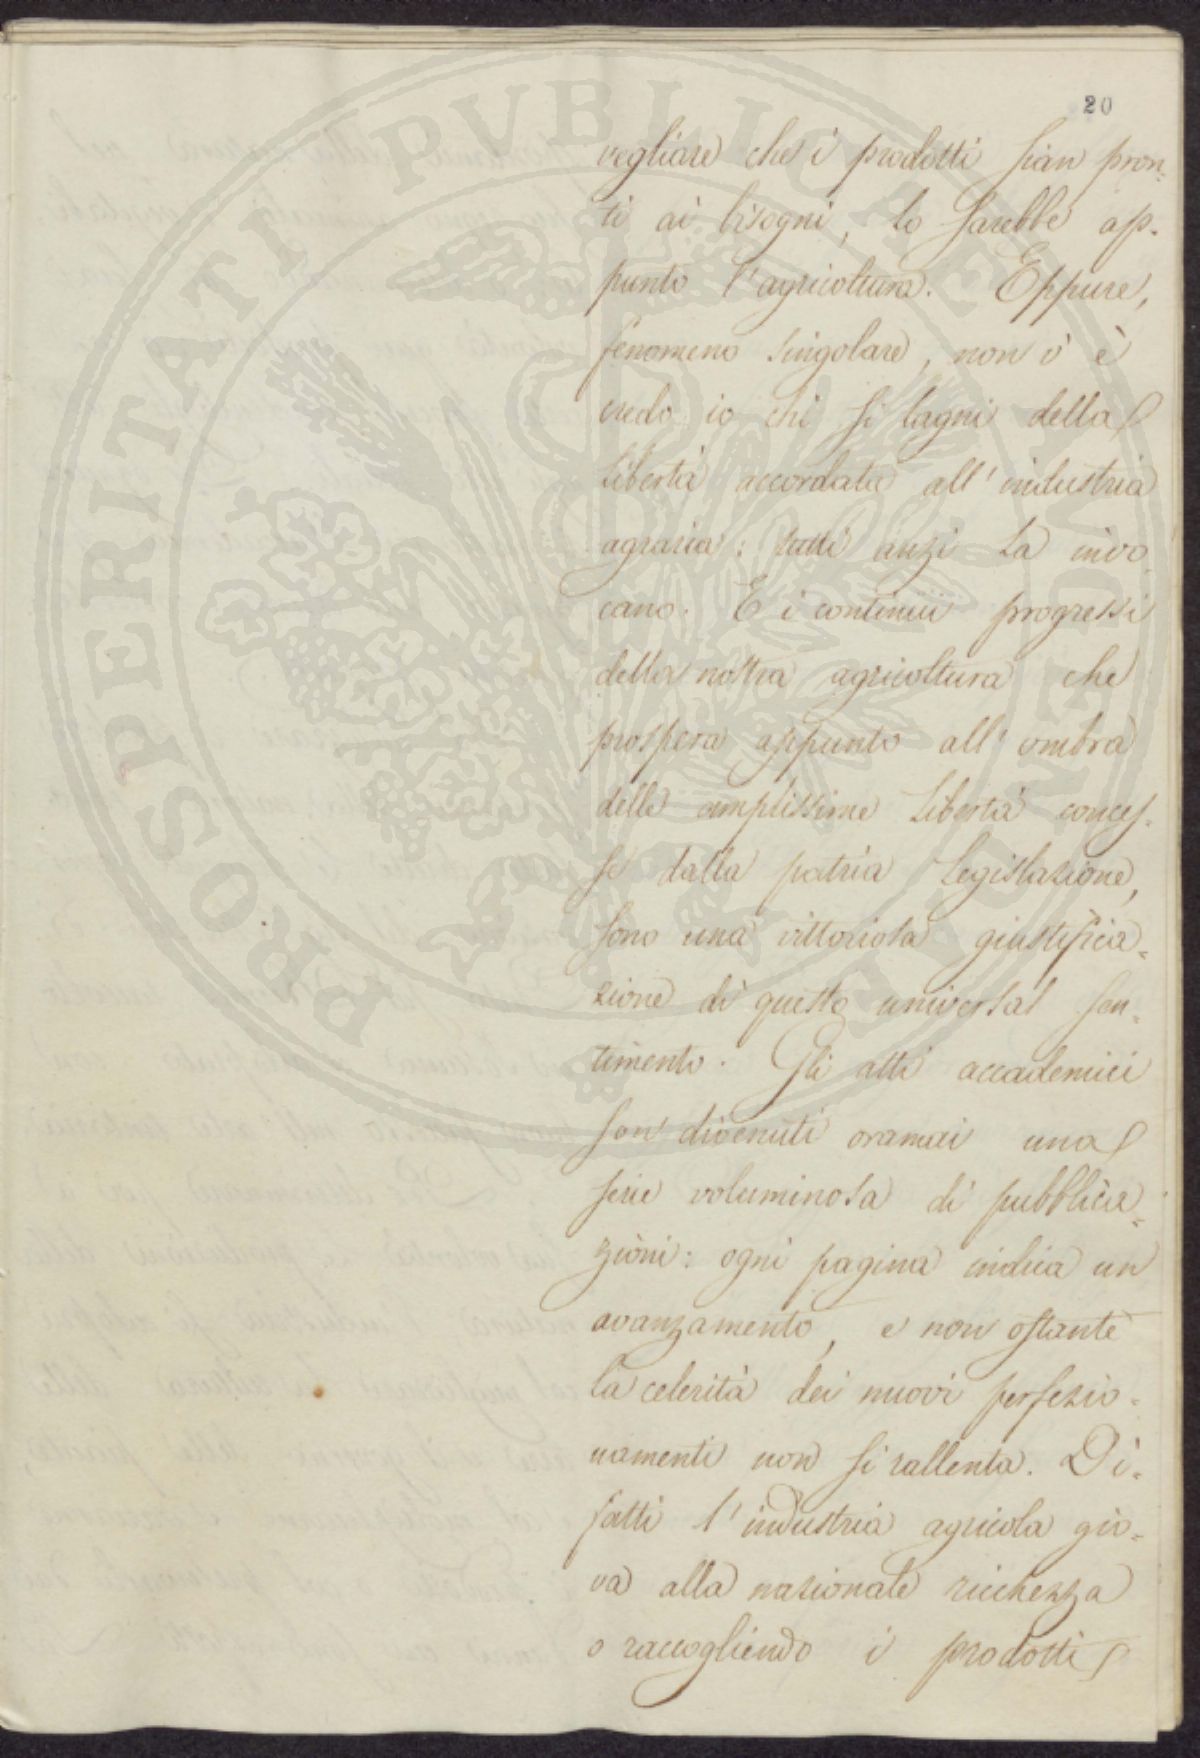 PROSPERITATI PVBLICAE AVGENDAE
20
vegliare che i prodotti sian pron-
ti ai bisogni, lo sarebbe ap-
punto l'agricoltura. Eppure,
fenomeno singolare, non v'è
credo io chi si lagni della
libertà accordata all'industria
agraria: tutti anzi la invo-
cano. E i continui progressi
della nostra agricoltura che
prospera appunto all'ombra
delle amplissime libertà conces-
se dalla patria Legislazione,
sono una vittoriosa giustifica-
zione di questo universal sen-
timento. Gli atti accademici
son divenuti oramai una
serie voluminosa di pubblica-
zioni: ogni pagina indica un
avanzamento, e non ostante
la celerità dei nuovi perfezio-
namenti non si rallenta. Di-
fatti l'industria agricola gio-
va alla nazionale ricchezza
o raccogliendo i prodotti